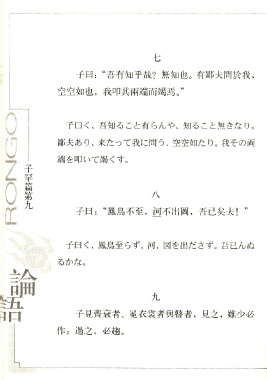 七
子曰：“吾有知乎哉？無知也。有鄙夫問於我，
空空如也，我叩其兩端而竭焉。”
子曰く、吾知ること有らんや、知ること無きなり。
鄙夫あり、来たって我に問う、空空如たり。我その両
端を叩いて竭くす。
八
子曰：“鳳鳥不至、河不出圖，吾已矣夫！”
子曰く、鳳鳥至らず、河、図を出ださず。吾已んぬ
るかな。
九
子見齊衰者、冕衣裳者與瞽者，見之，雖少必
作；過之，必趨。
子罕篇第九
RONGO
論語